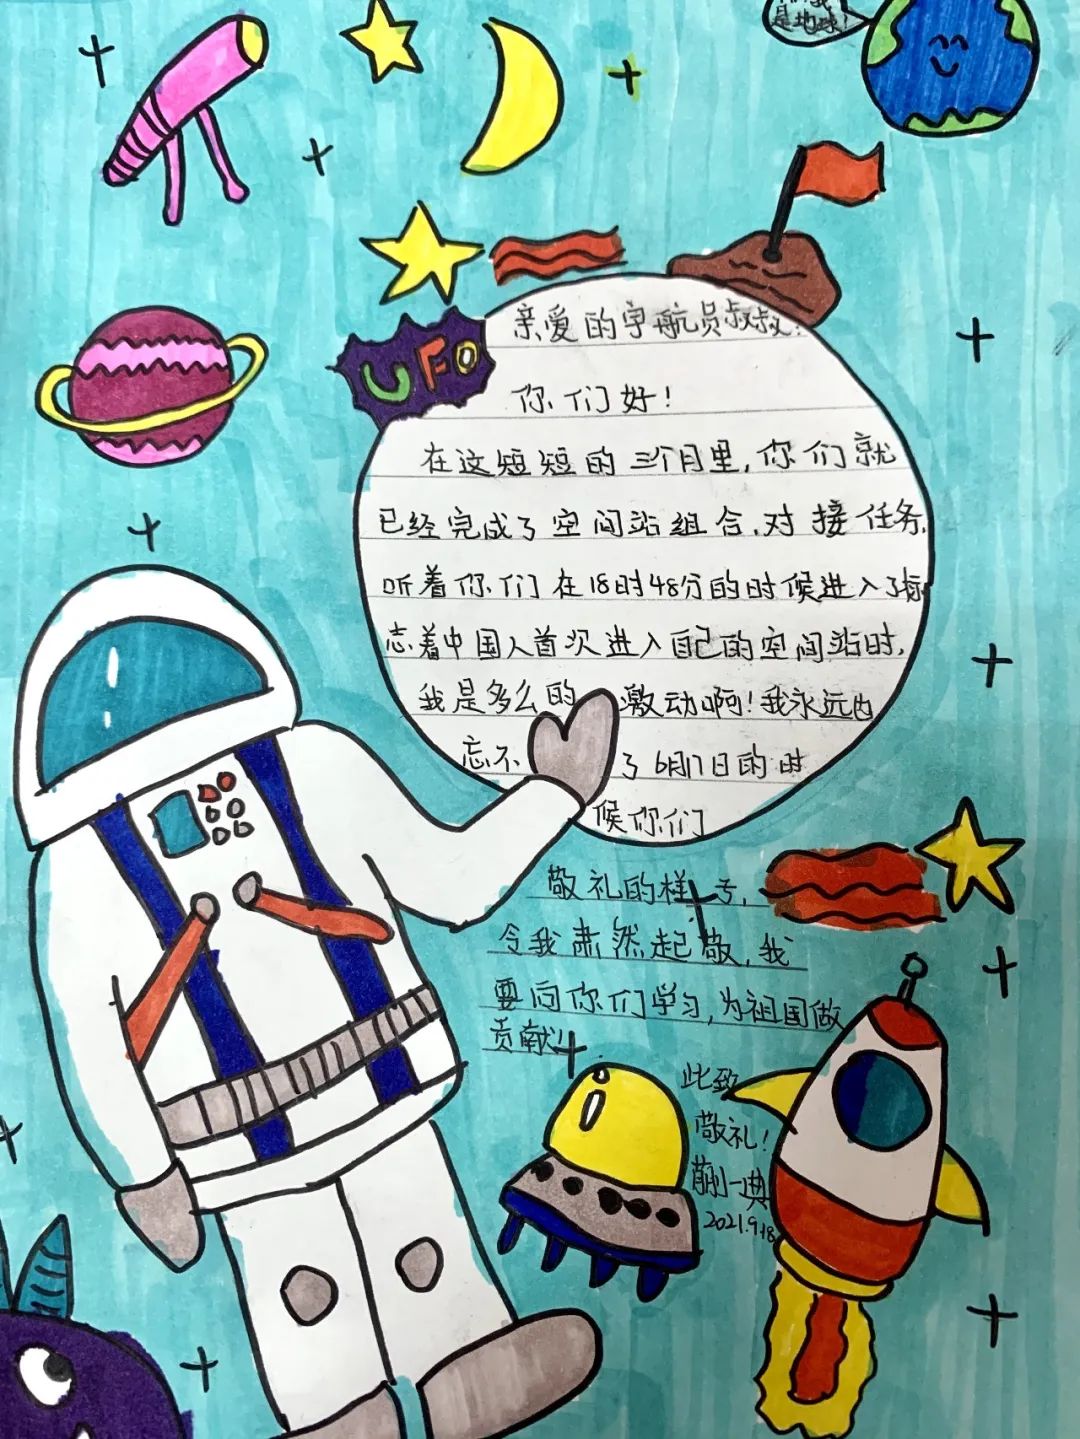 是地球!
亲爱的宇航员叔叔:
UFO
你们好!
在这短短的三个月里,你们就
已经完成了空间站组合,对接任务,
听着你们在18时48分的时候进入了标
志着中国人首次进入自己的空间站时,
我是多么的激动啊!我永远也
忘不了6月17日的时
候你们
敬礼的样
令我肃然起敬,我
要向你们学习,为祖国做
贡献!
此致
敬礼!
一典
2021.9.18